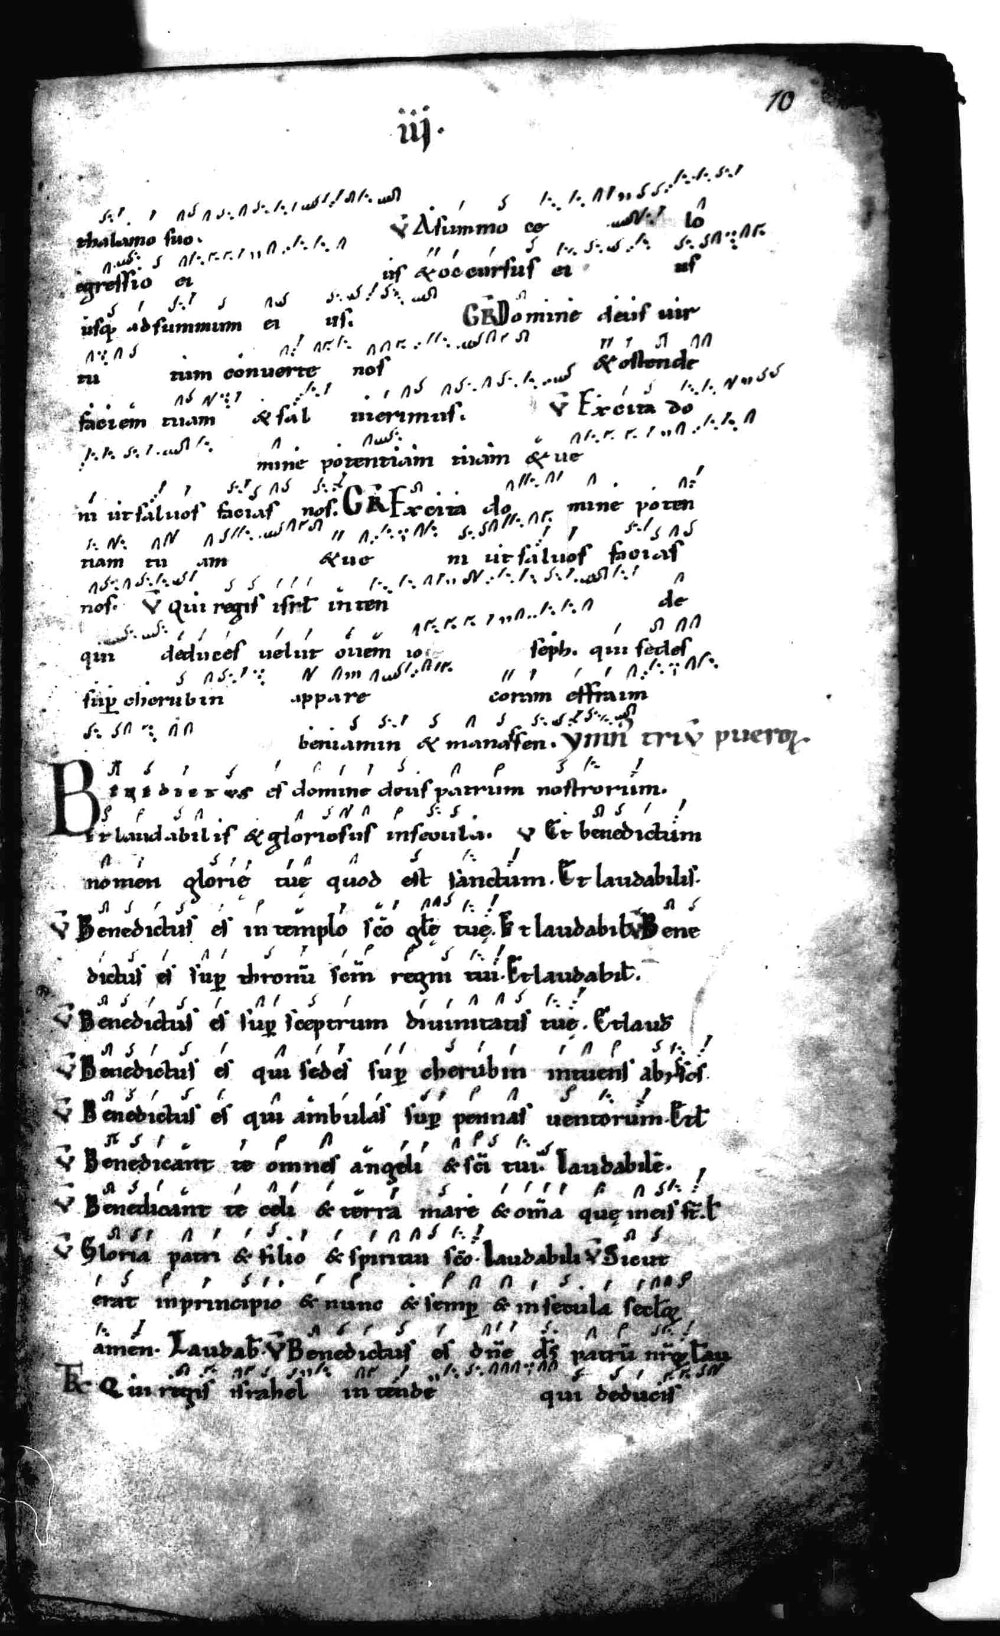 10
iij.
thalamo suo. V̄ Asummo ce lo
egressio ei us & occursus ei us
usq; adsummum ei us. GR̄ Domine deus uir
tu tum conuerte nos & ostende
faciem tuam & sal uierimus. V̄ Excita do
mine potentiam tuam & ue
ni ut saluos facias nos. GR̄ Excita do mine poten
tiam tu am & ue ni ut saluos facias
nos. V̄ Qui regis isrł inten de
qui deduces uelut ouem io seph. qui sedes
sup cherubin appare coram effraim
beniamin & manassen. Ymn̄ triū pueroꝝ.
Benedictus es domine deus patrum nostrorum.
Et laudabilis & gloriosus insecula. V Et benedictum
nomen glorię tuę quod est sanctum. Et laudabilis.
V̄ Benedictus es in templo scō glę tuę. Et laudabil V̄ Bene
dictus es sup thronū scm̄ regni tui. Et laudabil.
V̄ Benedictus es sup sceptrum diuinitatis tuę. Et laud
V̄ Benedictus es qui sedes sup cherubin intuens abyssos.
V̄ Benedictus es qui ambulas sup pennas uentorum. Et ł
V̄ Benedicant te omnes angeli & sci tui. laudabile.
V̄ Benedicant te celi & terra mare & oma quę ineis st. ł
V̄ Gloria patri & filio & spiritui scō. laudabili V̄ Sicut
erat inprincipio & nunc & semp & insecula seclꝝ
amen. Laudab. V̄ Benedictus es dn̄e ds patrū nrꝝ lau
TR̄ Qui regis israhel intende qui deducis